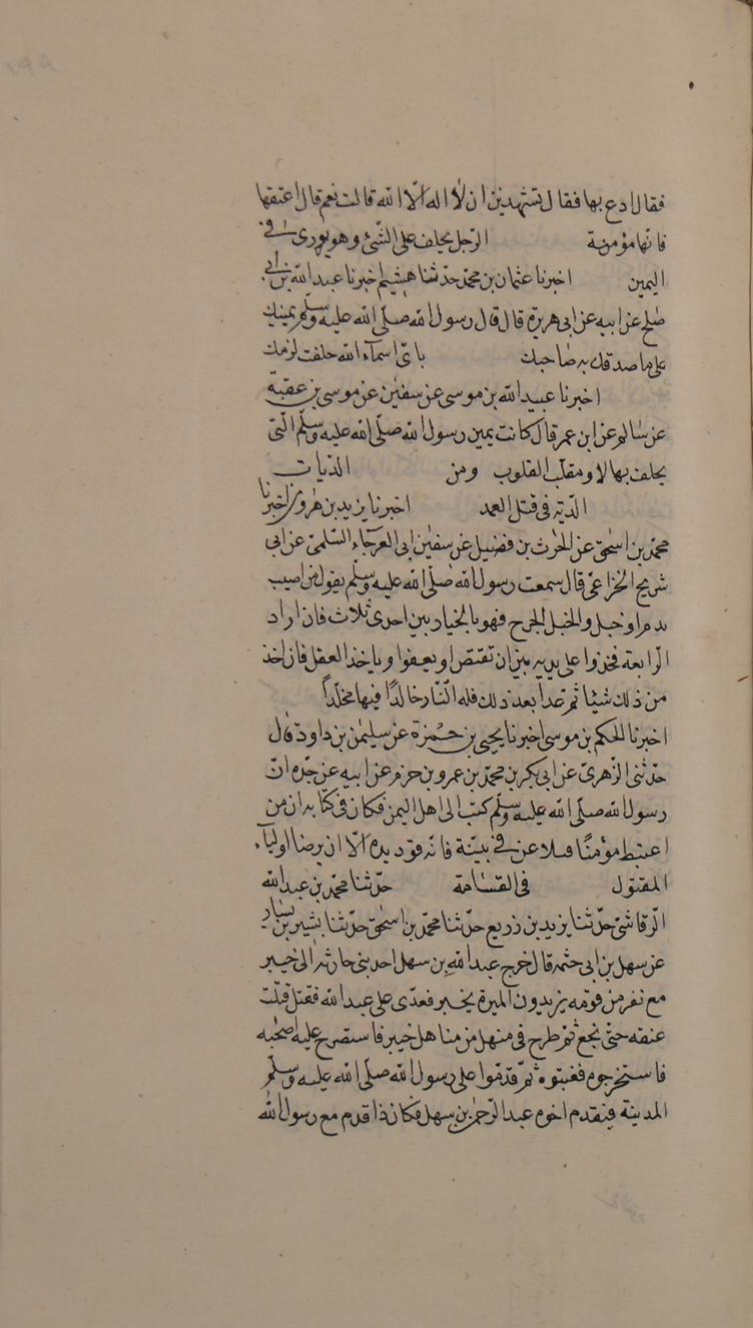 فقال ادع بها فقال تشهدين ان لا اله الا الله قالت نعم قال اعتقها
فانها مؤمنة الرجل يحلف على الشئ وهو يورى في
اليمين اخبرنا عثمان بن محمد حدثنا هشيم اخبرنا عبد الله بن ابي
صلح عن ابيه عن ابي هريرة قال قال رسول الله صلى الله عليه وسلم يمينك
على ما صدقك به صاحبك باى اسماء الله حلفت لزمك
اخبرنا عبيد الله بن موسى عن سفين عن موسى بن عقبة
عن سالم عن ابن عمر قال كانت يمين رسول الله صلى الله عليه وسلم التى
يحلف بها لا ومقلب القلوب ومن الديات
الدية فى قتل العمد اخبرنا يزيد بن هرون اخبرنا
محمد بن اسحق عن الحرث بن فضيل عن سفين ابى العرجاء السلمى عن ابى
شريح الخزاعى قال سمعت رسول الله صلى الله عليه وسلم يقول من اصيب
بدم او خبل والخبل الجرح فهو بالخيار بين احدى ثلاث فان اراد
الرابعة فخذوا على يديه بين ان تقتص او يعفوا وياخذ العقل فان اخذ
من ذلك شيئا ثم عدا بعد ذلك فله النار خالدا فيها مخلدا
اخبرنا الحكم بن موسى اخبرنا يحيى بن حمزة عن سليمن بن داود قال
حدثنى الزهرى عن ابى بكر بن محمد بن عمرو بن حزم عن ابيه عن جده ان
رسول الله صلى الله عليه وسلم كتب الى اهل اليمن فكان فى كتابه ان من
اعتبط مؤمنا قتلا عن بينة فانه قود يده الا ان يرضا اولياء
المقتول فى القسامة حدثنا محمد بن عبد الله
الرقاشى حدثنا يزيد بن زريع حدثنا محمد بن اسحق حدثنا بشير بن يسار
عن سهل بن ابى حثمه قال خرج عبد الله بن سهل احد بنى حارثه الى خيبر
مع نفر من قومه يريدون الميرة بخيبر فعدى على عبد الله فقتل قتلت
عنقه حتى نجع ثم طرح فى منهل من مناهل خيبر فاستصرح عليه اصحبه
فاستخرجوه فغبتوه ثم قدموا على رسول الله صلى الله عليه وسلم
المدينة فتقدم اخوه عبد الرحمن بن سهل فكان ذا قدم مع رسول الله